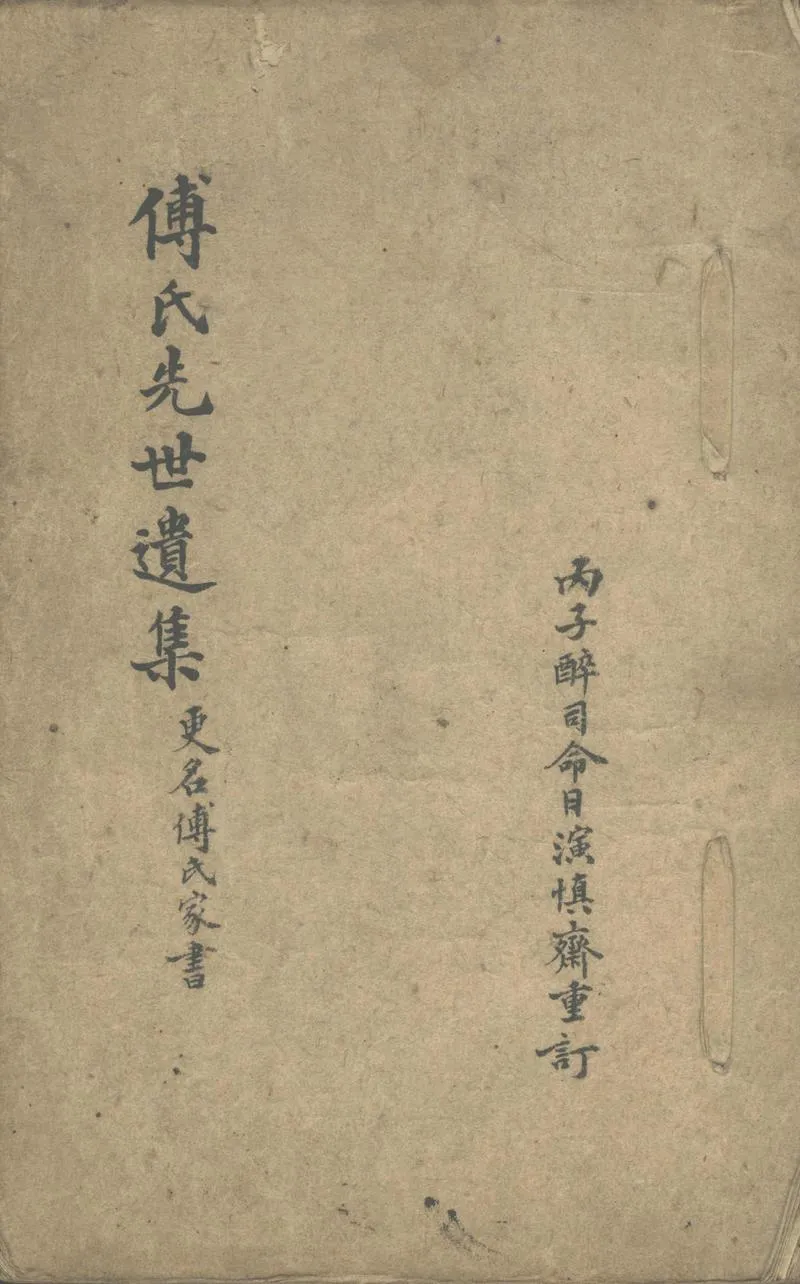 丙子醉司命日演慎齋重訂
傅氏先世遺集
更名傅氏家書